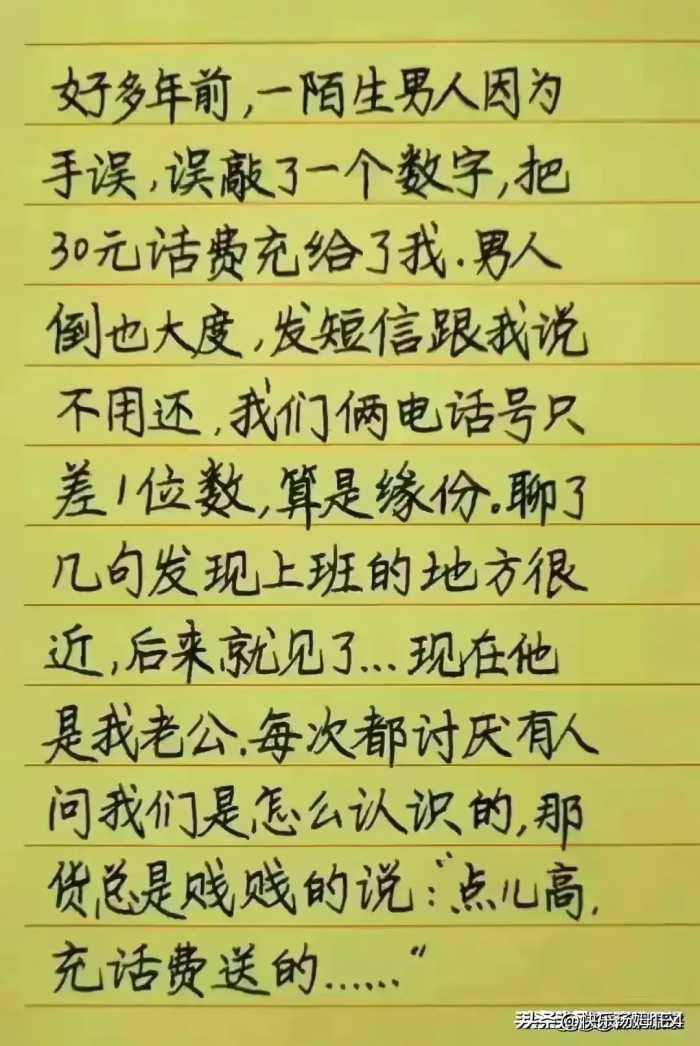 好多年前,一陌生男人因为
手误,误敲了一个数字,把
30元话费充给了我.男人
倒也大度,发短信跟我说
不用还,我们俩电话号只
差1位数,算是缘份。聊了
几句发现上班的地方很
近,后来就见了...现在他
是我老公.每次都讨厌有人
问我们是怎么认识的,那
货总是贱贱的说:"点儿高,
充话费送的......"